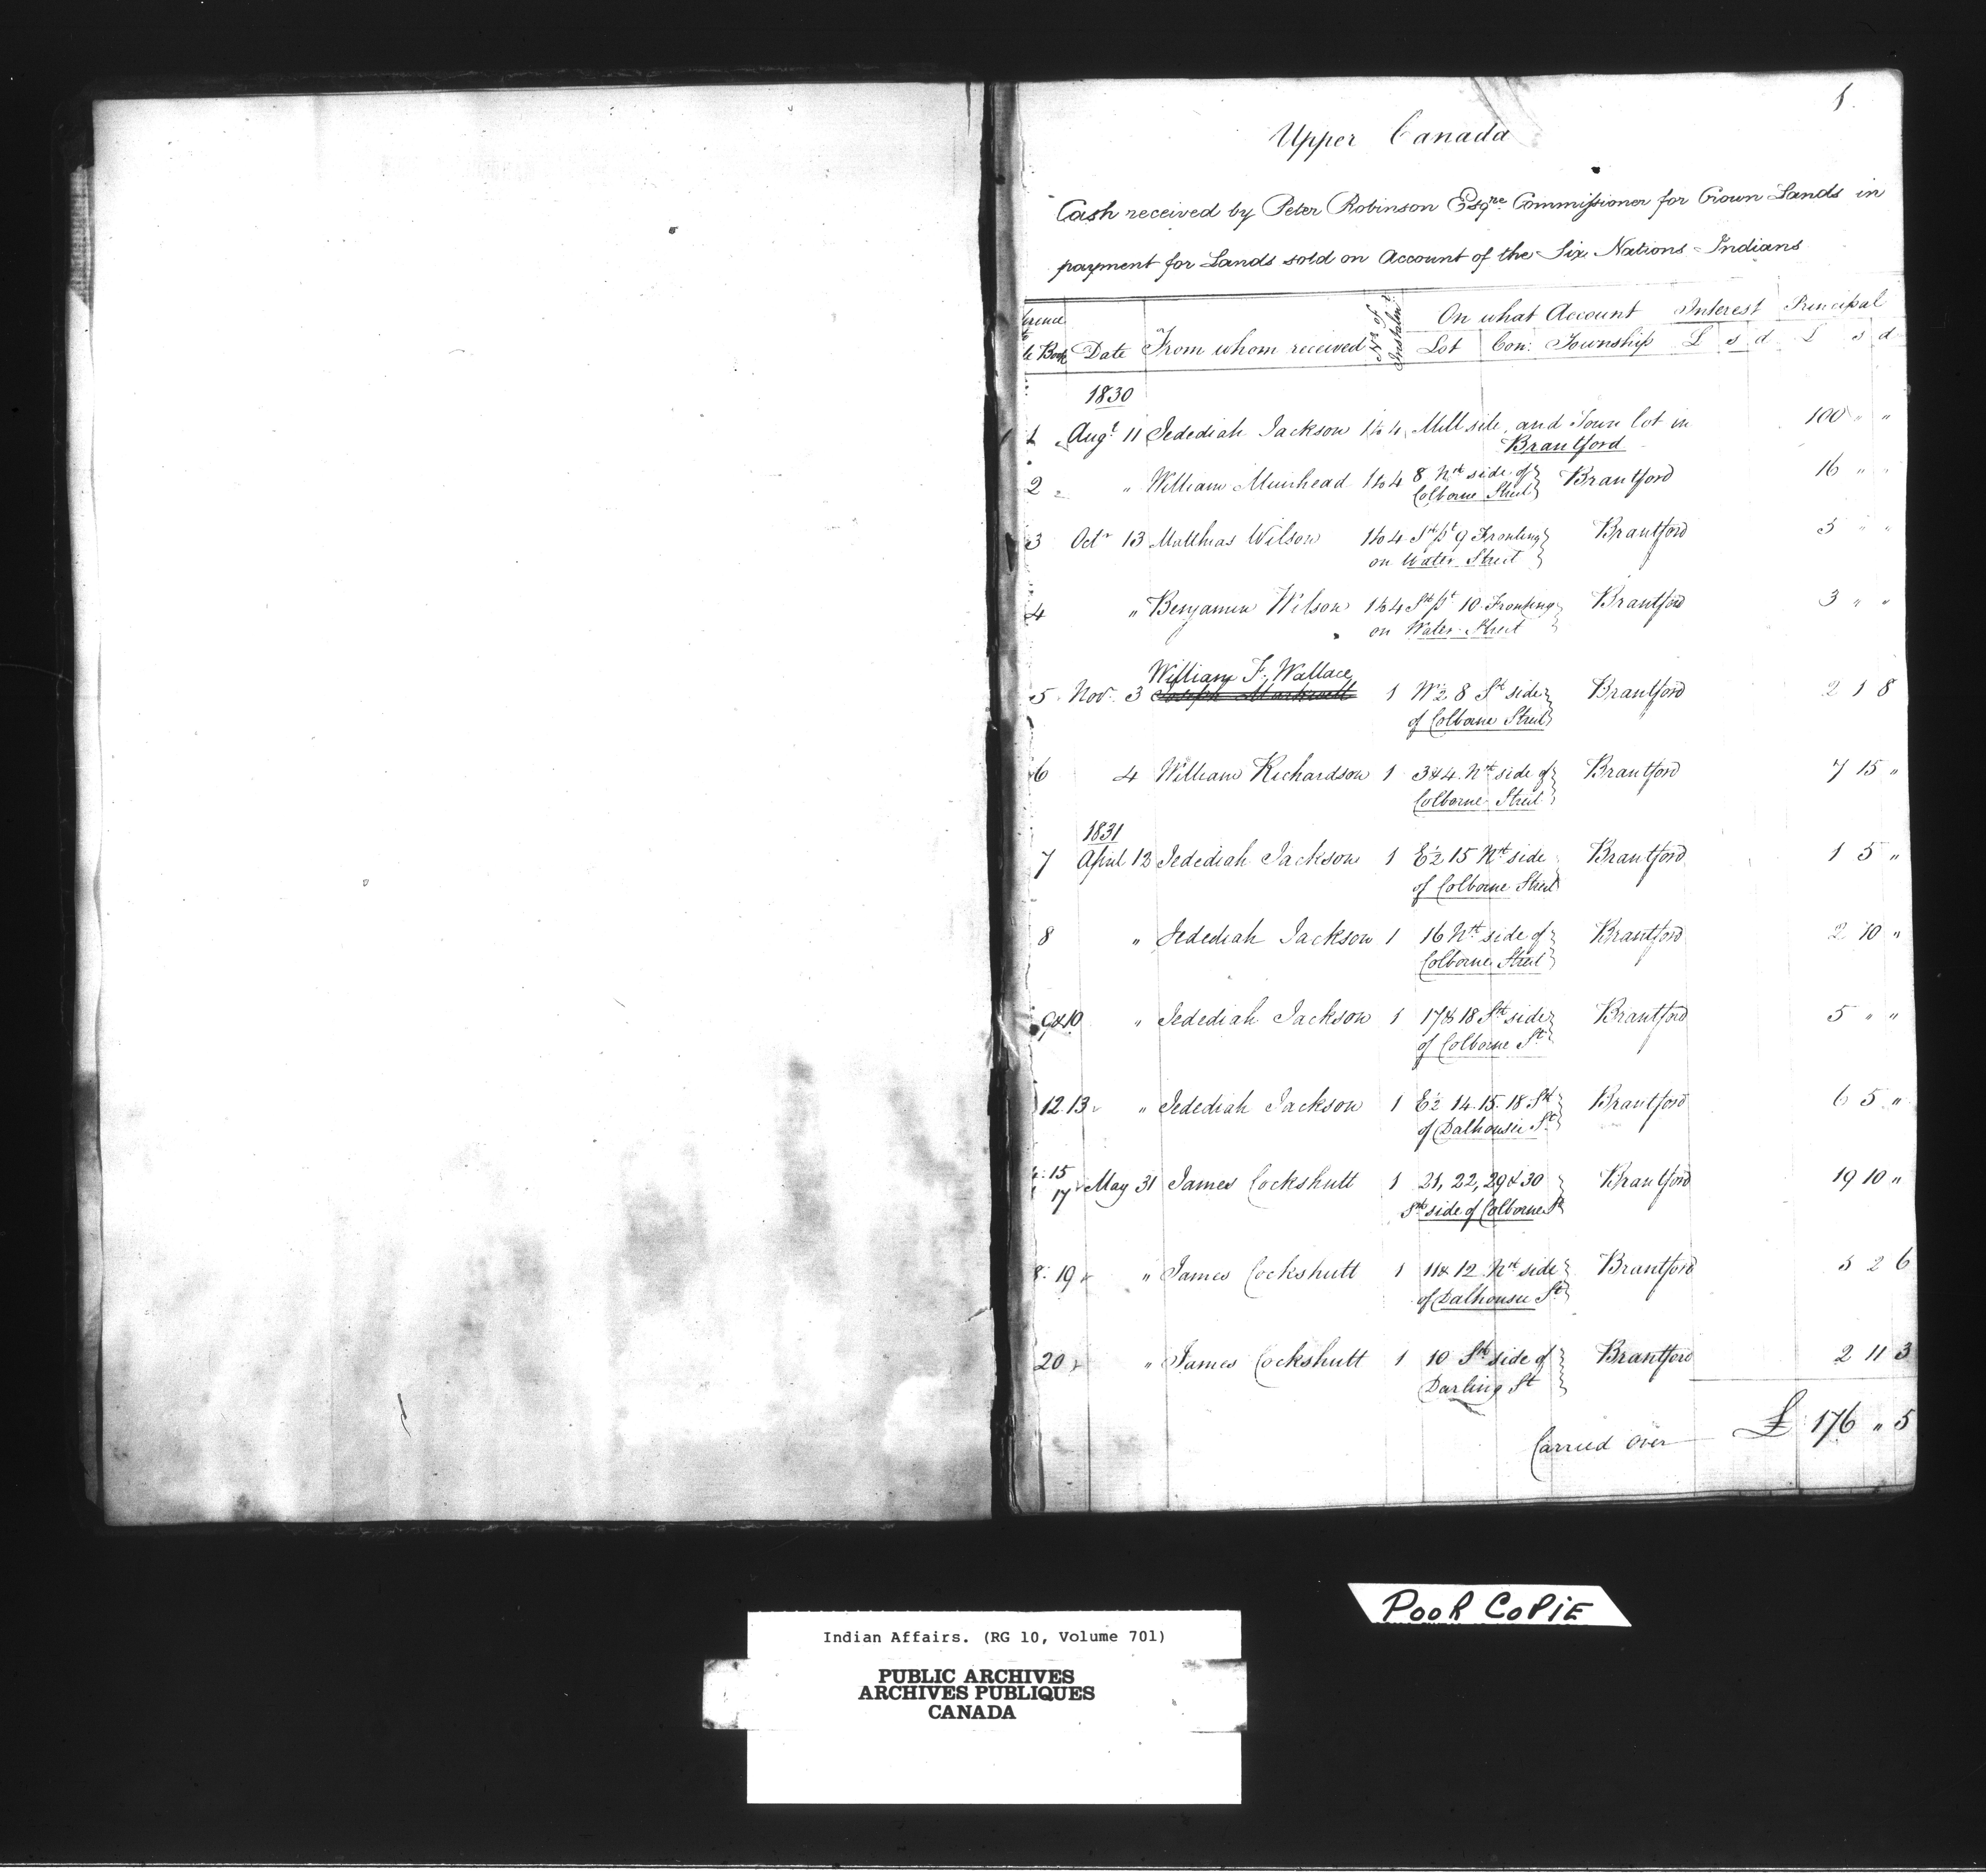 1.
Upper Canada
Cash received by Peter Robinson Esqre. Commissioner for Crown Lands in
payment for Lands sold on Account of the Six Nations Indians
Book Date From whom received No. of Instalmt. On what Account Interest Principal
Lot Con: Township £ s d £ s d
1830
1 Augt. 11 Jedediah Jackson 1 to 4 Mill site, and Town lot in 100 " "
Brantford
2 " William Muirhead 1 to 4 8 Nth side of Brantford 16 " "
Colborne Street
3 Octr 13 Matthias Wilson 1 to 4 Sth pt 9 Fronting Brantford 3 " "
on Water Street
4 " Benjamin Wilson 1 to 4 Sth pt 10 Fronting Brantford 3 " "
on Water Street
William F. Wallace
5 Nov. 3 1 W½ 8 Sth side Brantford 2 1 8
of Colborne Street
6 4 William Richardson 1 3 & 4 Nth side of Brantford 7 15 "
Colborne Street
1831
7 April 12 Jedediah Jackson 1 E½ 15 Nth side Brantford 1 5 "
of Colborne Street
8 " Jedediah Jackson 1 16 Nth side of Brantford 2 10 "
Colborne Street
9 & 10 " Jedediah Jackson 1 17 & 18 Sth side Brantford 5 " "
of Colborne St.
12. 13 " Jedediah Jackson 1 E½ 14. 15. 18 Sth Brantford 6 5 "
of Dalhousie St.
15
17 May 31 James Cockshutt 1 21, 22, 29 & 30 Brantford 19 10 "
Sth side of Colborne St
19 " James Cockshutt 1 11 & 12 Nth side Brantford 2 6
of Dalhousie St.
20 " James Cockshutt 1 10 Sth side of Brantford 2 11 3
Darling St
Carried over £ 176 " 5
POOR COPIE
Indian Affairs. (RG 10, Volume 701)
PUBLIC ARCHIVES
ARCHIVES PUBLIQUES
CANADA